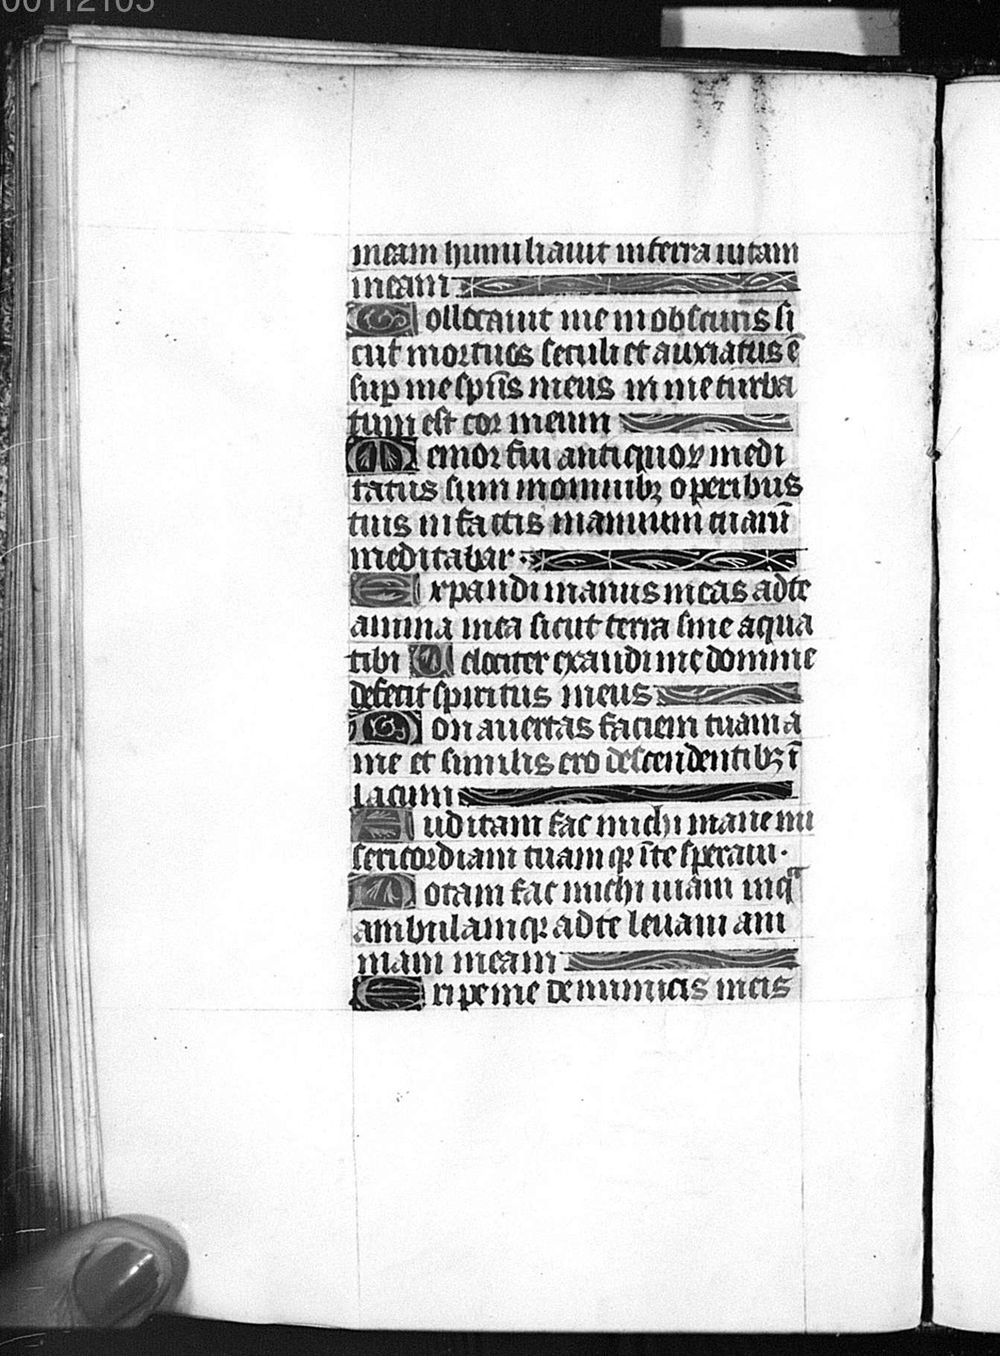 00112103
meam humiliauit in terra uitam
meam
Collocauit me in obscuris si
cut mortuos seculi et anxiatus ē
sup me spūs meus in me turba
tum est cor meum
Memor fui antiquoꝝ medi
tatus sum in omnibꝫ operibus
tuis in factis manuum tuarū
meditabar ·
Expandi manus meas ad te
anima mea sicut terra sine aqua
tibi Velociter exaudi me domine
defecit spiritus meus
Non auertas faciem tuam a
me et similis ero descendentibꝫ ī
lacum
Auditam fac michi mane mi
sericordiam tuam qꝛ ī te speraui ·
Notam fac michi uiam in q
ambulam qꝛ ad te leuaui ani
mam meam
Eripe me de inimicis meis